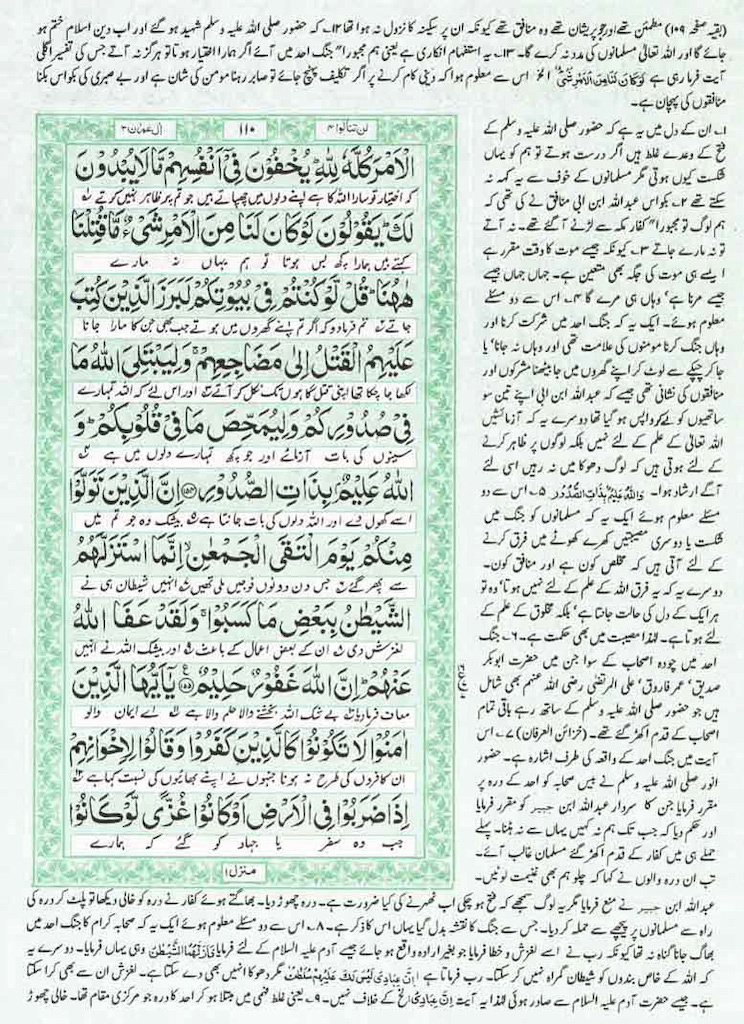 (بقیہ صفحہ ۱۰۹) مطمئن تھے اور جو پریشان تھے وہ منافق تھے کیونکہ ان پر سکینہ کا نزول نہ ہوا تھا ۱۲۔ کہ حضور صلی اللہ علیہ وسلم شہید ہو گئے اور اب دین اسلام ختم ہو
جائے گا اور اللہ تعالیٰ مسلمانوں کی مدد نہ کرے گا۔ ۱۳۔ یہ استفہام انکاری ہے یعنی ہم مجبوراً" جنگ احد میں آئے اگر ہمارا اختیار ہوتا تو ہرگز نہ آتے جس کی تفسیر اگلی
آیت فرما رہی ہے لَوْكَانَ لَنَا مِنَ الْاَمْرِ شَیْءٌ الخ اس سے معلوم ہوا کہ دینی کام کرنے پر اگر تکلیف پہنچ جائے تو صابر رہنا مومن کی شان ہے اور بے صبری کی بکواس بکنا
منافقوں کی پہچان ہے۔
اٰل عمرٰن ۳
۱۱۰
لن تنالوا ۴
الْاَمْرَ كُلَّهٗ لِلّٰهِ ؕ یُخْفُوْنَ فِیْۤ اَنْفُسِهِمْ مَّا لَا یُبْدُوْنَ
کہ اختیار تو سارا اللہ کا ہے اپنے دلوں میں چھپاتے ہیں جو تم پر ظاہر نہیں کرتے
لَكَ ؕ یَقُوْلُوْنَ لَوْ كَانَ لَنَا مِنَ الْاَمْرِ شَیْءٌ مَّا قُتِلْنَا
کہتے ہیں ہمارا کچھ بس ہوتا تو ہم یہاں نہ مارے
هٰهُنَا ؕ قُلْ لَّوْ كُنْتُمْ فِیْ بُیُوْتِكُمْ لَبَرَزَ الَّذِیْنَ كُتِبَ
جاتے تم فرما دو کہ اگر تم اپنے گھروں میں ہوتے جب بھی جن کا مارا جانا
عَلَیْهِمُ الْقَتْلُ اِلٰى مَضَاجِعِهِمْ ۚ وَ لِیَبْتَلِیَ اللّٰهُ مَا
لکھا جا چکا تھا اپنی قتل گاہوں تک نکل کر آتے اور اس لئے کہ اللہ تمہارے
فِیْ صُدُوْرِكُمْ وَ لِیُمَحِّصَ مَا فِیْ قُلُوْبِكُمْ ؕ وَ
سینوں کی بات آزمائے اور جو کچھ تمہارے دلوں میں ہے
اللّٰهُ عَلِیْمٌۢ بِذَاتِ الصُّدُوْرِ ۝۱۵۴ اِنَّ الَّذِیْنَ تَوَلَّوْا
اسے کھول دے اور اللہ دلوں کی بات جانتا ہے بیشک وہ جو تم میں
مِنْكُمْ یَوْمَ الْتَقَى الْجَمْعٰنِ ۙ اِنَّمَا اسْتَزَلَّهُمُ
سے پھر گئے جس دن دونوں فوجیں ملی تھیں انہیں شیطان ہی نے
الشَّیْطٰنُ بِبَعْضِ مَا كَسَبُوْا ۚ وَ لَقَدْ عَفَا اللّٰهُ
لغزش دی ان کے بعض اعمال کے باعث اور بیشک اللہ نے انہیں
عَنْهُمْ ؕ اِنَّ اللّٰهَ غَفُوْرٌ حَلِیْمٌ ۝۱۵۵ یٰۤاَیُّهَا الَّذِیْنَ
معاف فرما دیا بے شک اللہ بخشنے والا حلم والا ہے اے ایمان والو
اٰمَنُوْا لَا تَكُوْنُوْا كَالَّذِیْنَ كَفَرُوْا وَ قَالُوْا لِاِخْوَانِهِمْ
ان کافروں کی طرح نہ ہونا جنہوں نے اپنے بھائیوں کی نسبت کہا ہے
اِذَا ضَرَبُوْا فِی الْاَرْضِ اَوْ كَانُوْا غُزًّى لَّوْ كَانُوْا
جب وہ سفر یا جہاد کو گئے کہ ہمارے
منزل۱
۱۔ ان کے دل میں یہ ہے کہ حضور صلی اللہ علیہ وسلم کے
فتح کے وعدے غلط ہیں اگر درست ہوتے تو ہم کو یہاں
شکست کیوں ہوتی مگر مسلمانوں کے خوف سے یہ کہہ نہ
سکتے تھے ۲۔ بکواس عبداللہ ابن ابی منافق نے کی تھی کہ
ہم لوگ تو مجبوراً" کفار مکہ سے لڑنے آ گئے تھے۔ نہ آتے
تو نہ مارے جاتے ۳۔ کیونکہ جیسے موت کا وقت مقرر ہے
ایسے ہی موت کی جگہ بھی متعین ہے۔ جہاں جہاں جیسے
جیسے مرنا ہے' وہاں ہی مرے گا ۴۔ اس سے دو مسئلے
معلوم ہوئے۔ ایک یہ کہ جنگ احد میں شرکت کرنا اور
وہاں جنگ کرنا مومنوں کی علامت تھی اور وہاں نہ جانا' یا
جا کر چپکے سے لوٹ کر اپنے گھروں میں جا بیٹھنا مشرکوں اور
منافقوں کی نشانی تھی جیسے کہ عبداللہ ابن ابی اپنے تین سو
ساتھیوں کو لے کر واپس ہو گیا تھا دوسرے یہ کہ آزمائشیں
اللہ تعالیٰ کے علم کے لئے نہیں بلکہ لوگوں پر ظاہر کرنے
کے لئے ہوتی ہیں کہ لوگ دھوکا میں نہ رہیں اسی لئے
آگے ارشاد ہوا۔ وَاللّٰهُ عَلِیْمٌۢ بِذَاتِ الصُّدُوْرِ ۵۔ اس سے دو
مسئلے معلوم ہوئے ایک یہ کہ مسلمانوں کو جنگ میں
شکست یا دوسری مصیبتیں کھرے کھوٹے میں فرق کرنے
کے لئے آتی ہیں کہ مخلص کون ہے اور منافق کون۔
دوسرے یہ کہ یہ فرق اللہ کے علم کے لئے نہیں ہوتا' وہ تو
ہر ایک کے دل کی حالت جانتا ہے' بلکہ مخلوق کے علم کے
لئے ہوتا ہے۔ لہٰذا مصیبت میں بھی حکمت ہے۔ ۶۔ جنگ
احد میں چودہ اصحاب کے سوا جن میں حضرت ابوبکر
صدیق' عمر فاروق' علی المرتضیٰ رضی اللہ عنہم بھی شامل
ہیں جو حضور صلی اللہ علیہ وسلم کے ساتھ رہے باقی تمام
اصحاب کے قدم اکھڑ گئے تھے۔ (خزائن العرفان) ۷۔ اس
آیت میں جنگ احد کے واقعہ کی طرف اشارہ ہے۔ حضور
انور صلی اللہ علیہ وسلم نے بیس صحابہ کو احد کے درہ پر
مقرر فرمایا جن کا سردار عبداللہ ابن جبیر کو مقرر فرمایا
اور حکم دیا کہ جب تک ہم نہ کہیں یہاں سے نہ ہٹنا۔ پہلے
حملے ہی میں کفار کے قدم اکھڑ گئے مسلمان غالب آئے۔
تب ان درہ والوں نے کہا کہ چلو ہم بھی غنیمت لوٹیں۔
عبداللہ ابن جبیر نے منع فرمایا مگر یہ لوگ سمجھے کہ فتح ہو چکی اب ٹھہرنے کی کیا ضرورت ہے۔ درہ چھوڑ دیا۔ بھاگتے ہوئے کفار نے درہ کو خالی دیکھا تو پلٹ کر درہ کی
راہ سے مسلمانوں پر پیچھے سے حملہ کر دیا۔ جس سے جنگ کا نقشہ بدل گیا یہاں اس کا ذکر ہے۔ ۸۔ اس سے دو مسئلے معلوم ہوئے ایک یہ کہ صحابہ کرام کا جنگ احد میں
بھاگ جانا گناہ نہ تھا کیونکہ رب نے اسے لغزش و خطا فرمایا جو بغیر ارادہ واقع ہو جائے جیسے آدم علیہ السلام کے لئے فرمایا فَاَزَلَّهُمَا الشَّیْطٰنُ وہی یہاں فرمایا۔ دوسرے یہ
کہ اللہ کے خاص بندوں کو شیطان گمراہ نہیں کر سکتا۔ رب فرماتا ہے اِنَّ عِبَادِیْ لَیْسَ لَكَ عَلَیْهِمْ سُلْطٰنٌ مگر دھوکا انہیں بھی دے سکتا ہے۔ لغزش ان سے بھی کرا سکتا
ہے۔ جیسے حضرت آدم علیہ السلام سے صادر ہوئی لہٰذا یہ آیت اِنَّ عِبَادِیْ الخ کے خلاف نہیں۔ ۹۔ یعنی غلط فہمی میں مبتلا ہو کر احد کا درہ جو مرکزی مقام تھا۔ خالی چھوڑ